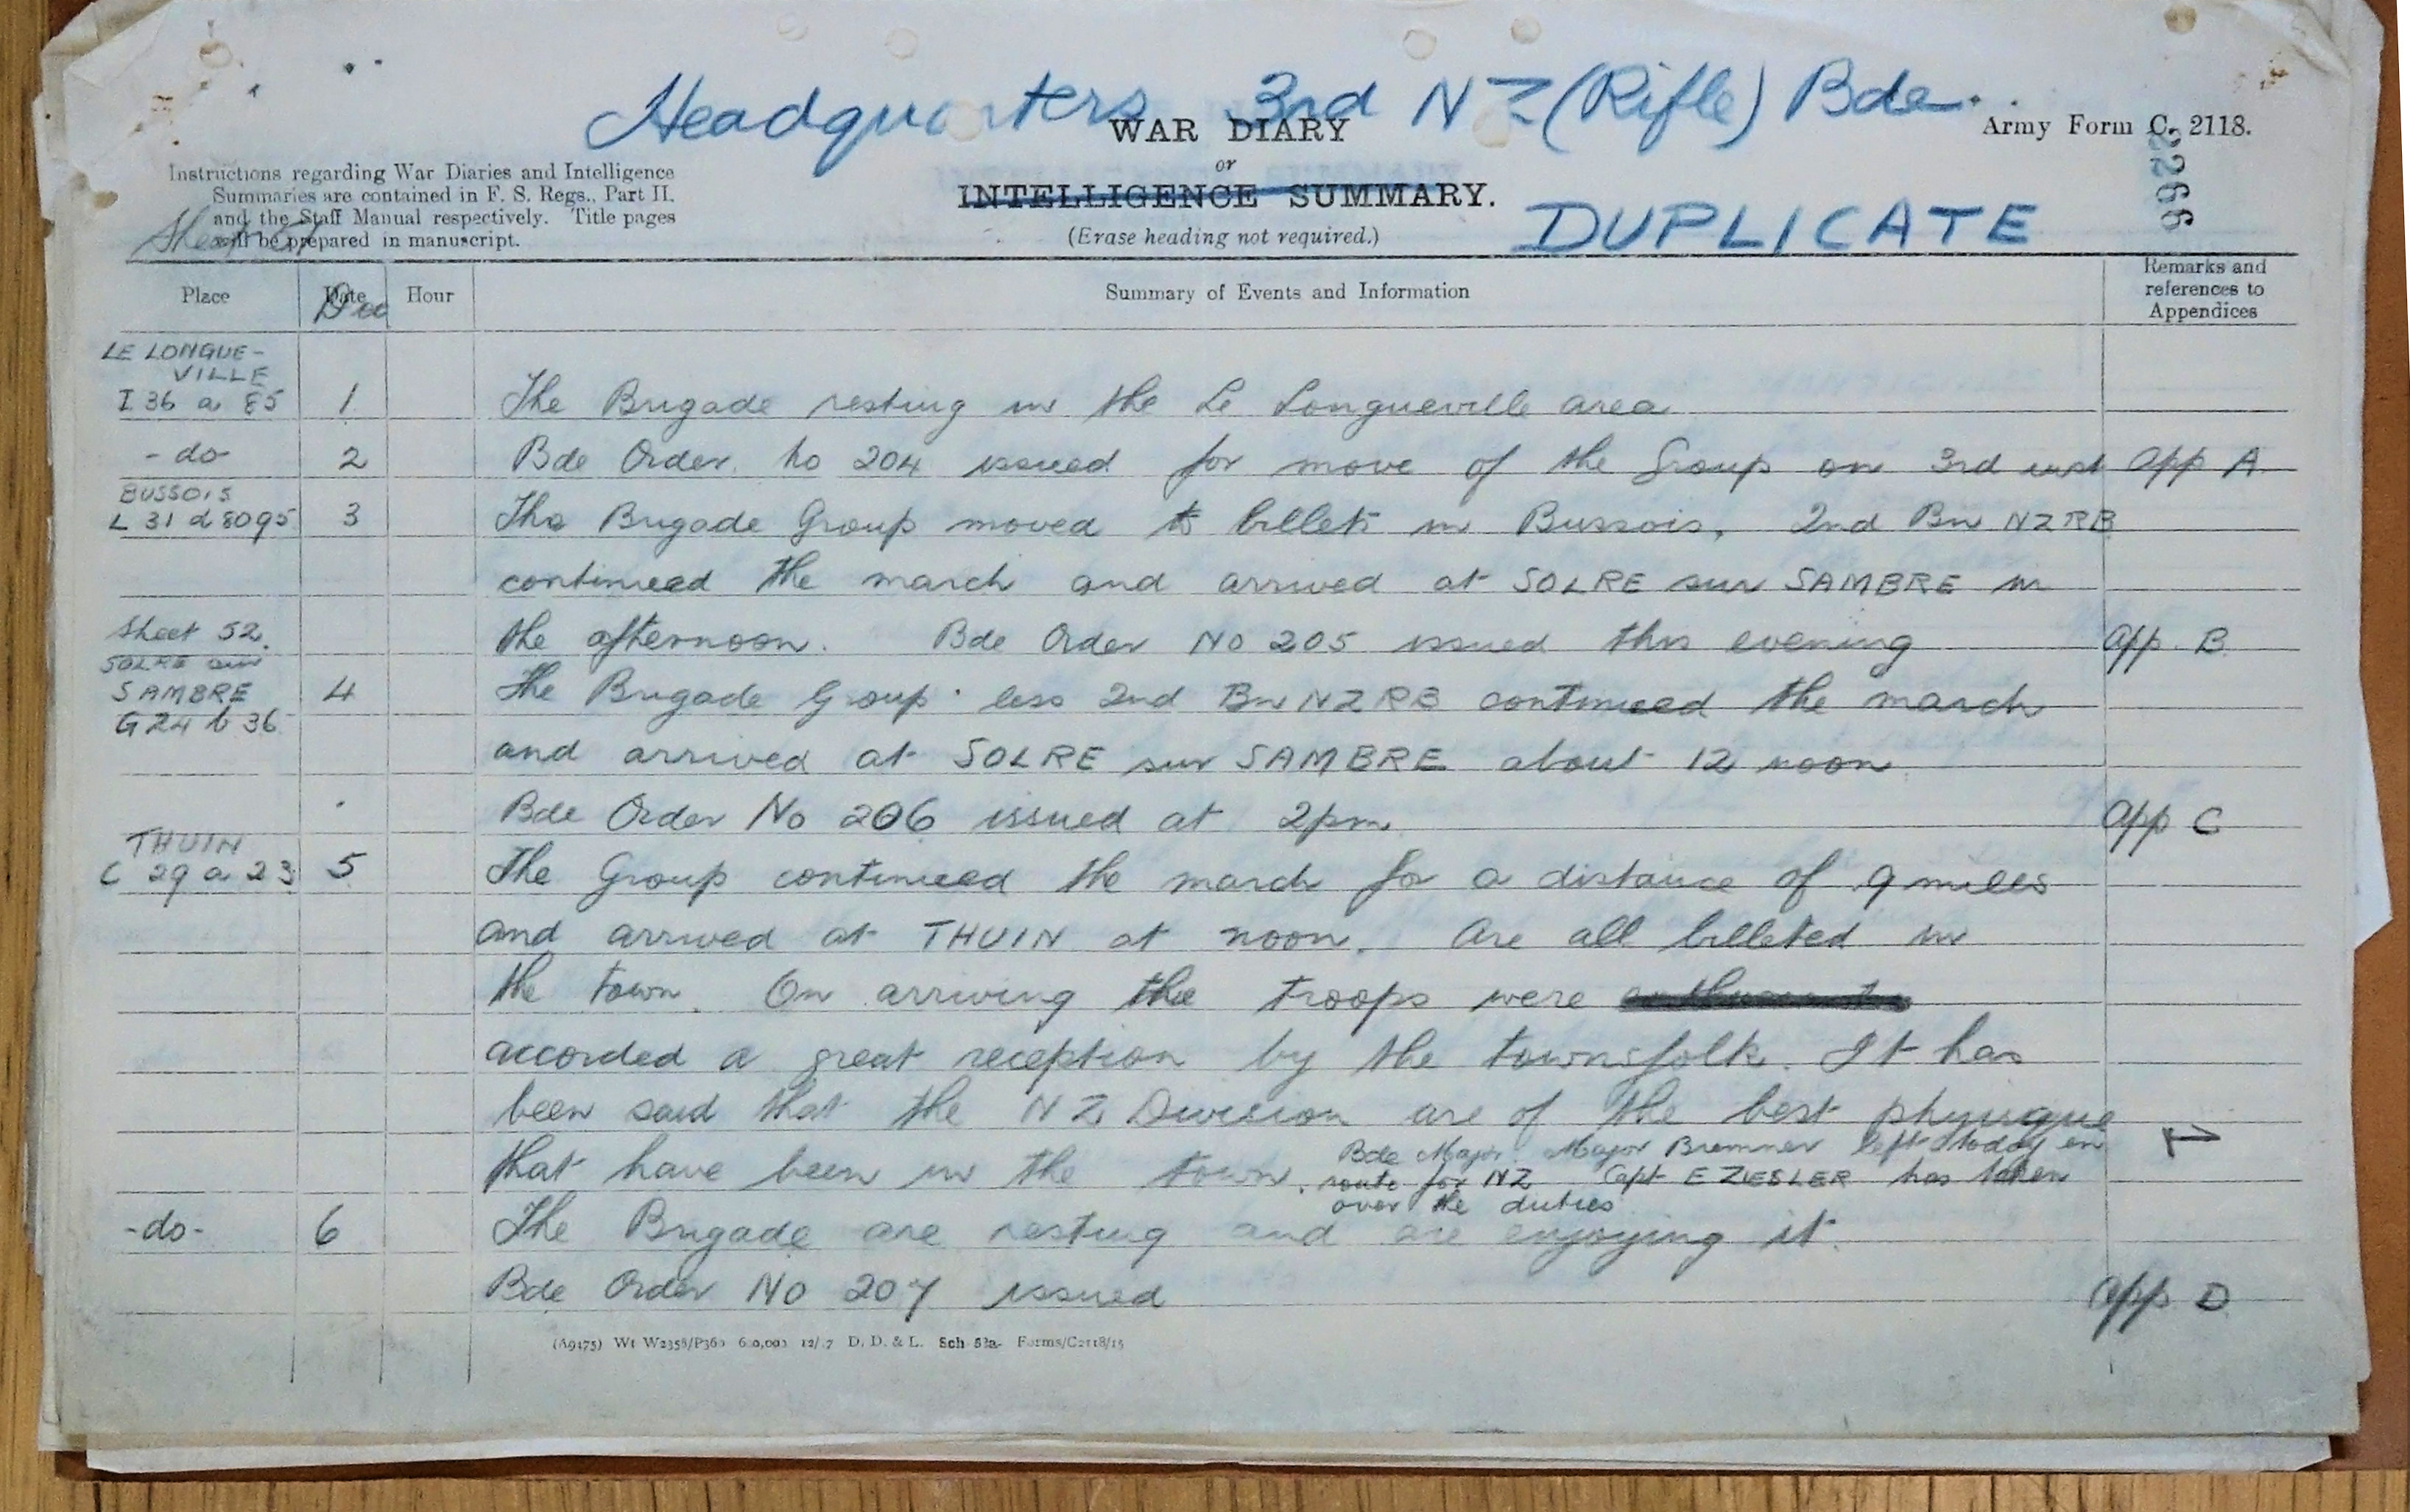 Headquarters 3rd NZ (Rifle) Bde.
WAR DIARY
or
INTELLIGENCE SUMMARY.
(Erase heading not required.)
Army Form C. 2118.
DUPLICATE
Instructions regarding War Diaries and Intelligence
Summaries are contained in F. S. Regs., Part II.
and the Staff Manual respectively. Title pages
will be prepared in manuscript.
Sheet 51
Place Date Hour Summary of Events and Information Remarks and references to Appendices
Dec
LE LONGUE-
VILLE
I 36 a 85 1 The Brigade resting in the Le Longueville area
- do - 2 Bde Order No 204 issued for move of the Group on 3rd inst app A.
BUSSOIS
L 31 d 8095 3 The Brigade Group moved to billets in Bussois, 2nd Bn NZRB
continued the march and arrived at SOLRE sur SAMBRE in
Sheet 52. the afternoon. Bde Order No 205 issued this evening app. B
SOLRE sur
SAMBRE 4 The Brigade Group less 2nd Bn NZRB continued the march
G 24 b 36
and arrived at SOLRE sur SAMBRE about 12 noon
Bde Order No 206 issued at 2pm app C
THUIN
C 29 a 23 5 The Group continued the march for a distance of 9 miles
and arrived at THUIN at noon. Are all billeted in
the town. On arriving the troops were
accorded a great reception by the townsfolk. It has
been said that the NZ Division are of the best physique
that have been in the town. Bde Major. Major Bremner left today en
route for NZ Capt E ZIESLER has taken
over the duties
-do- 6 The Brigade are resting and are enjoying it.
Bde Order No 207 issued app D
(A9475) Wt W2358/P360 600,000 12/17 D. D. & L. Sch 52a. Forms/C2118/15